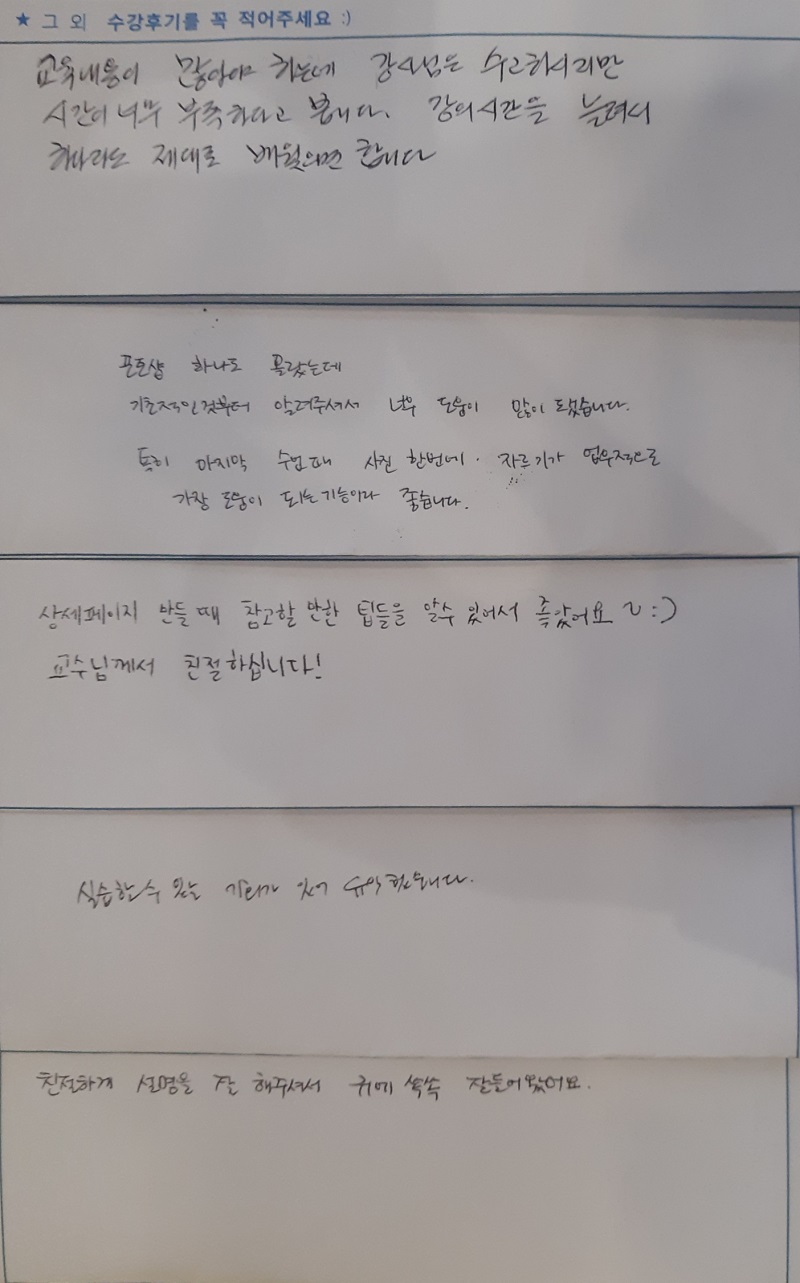 ★ 그 외 수강후기를 꼭 적어주세요 :)
교육내용이 많아야 하는데 강사님은 수고하시지만
시간이 너무 부족하다고 봅니다. 강의시간을 늘려서
하나라도 제대로 배웠으면 합니다
포토샵 하나도 몰랐는데
기초적인것부터 알려주셔서 너무 도움이 많이 됐습니다.
특히 마지막 수업때 사진 한번에 자르기가 업무적으로
가장 도움이 되는기능이라 좋습니다.
상세페이지 만들 때 참고할 만한 팁들을 알수 있어서 좋았어요 ~ :)
교수님께서 친절하십니다!
실습할수 있는 기회가 있어 유익했습니다.
친절하게 설명을 잘 해주셔서 귀에 쏙쏙 잘들어왔어요.